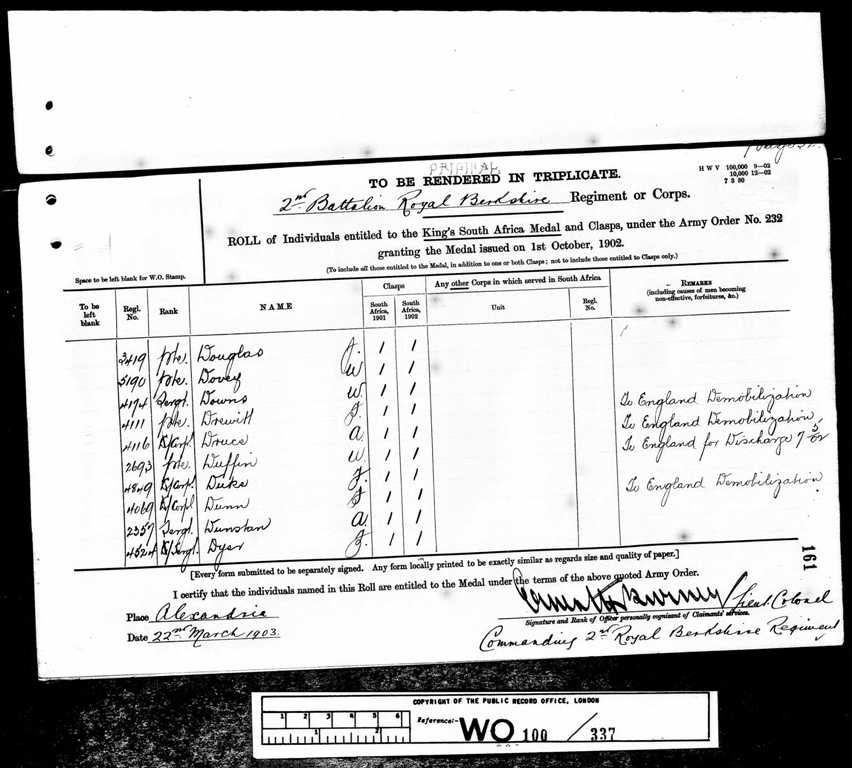 ORIGINAL
TO BE RENDERED IN TRIPLICATE.
H W V 100,000 9—02
10,000 12—02
7 3 80
2nd Battalion Royal Berkshire Regiment or Corps.
ROLL of Individuals entitled to the King's South Africa Medal and Clasps, under the Army Order No. 232
granting the Medal issued on 1st October, 1902.
(To include all those entitled to the Medal, in addition to one or both Clasps; not to include those entitled to Clasps only.)
Space to be left blank for W.O. Stamp.
To be left blank Regl. No. Rank NAME Clasps South Africa, 1901 South Africa, 1902 Any other Corps in which served in South Africa Unit Regl. No. REMARKS (including causes of men becoming non-effective, forfeitures, &c.)
3419 Pte. Douglas J. 1 1
5190 Pte. Dovey W 1 1
4174 Sergt. Downs W. 1 1 To England Demobilization
4111 Pte. Drewitt J. 1 1 To England Demobilization
4116 L/Corpl Druce A. 1 1 To England for Discharge
2693 Pte. Duffin W. 1 1
4849 L/Corpl Duke J. 1 1 To England Demobilization
4069 L/Corpl Dunn J 1 1
2357 Sergt. Dunstan A. 1 1
4524 Sergt. Dyer J. 1 1
[Every form submitted to be separately signed. Any form locally printed to be exactly similar as regards size and quality of paper.]
161
I certify that the individuals named in this Roll are entitled to the Medal under the terms of the above quoted Army Order.
Place Alexandria
Lieut. Colonel
Signature and Rank of Officer personally cognizant of Claimants' services.
Date 22nd March 1903.
Commanding 2nd Royal Berkshire Regiment
COPYRIGHT OF THE PUBLIC RECORD OFFICE, LONDON
1 2 3 4 5 6
Reference:- WO 100 / 337
1 2